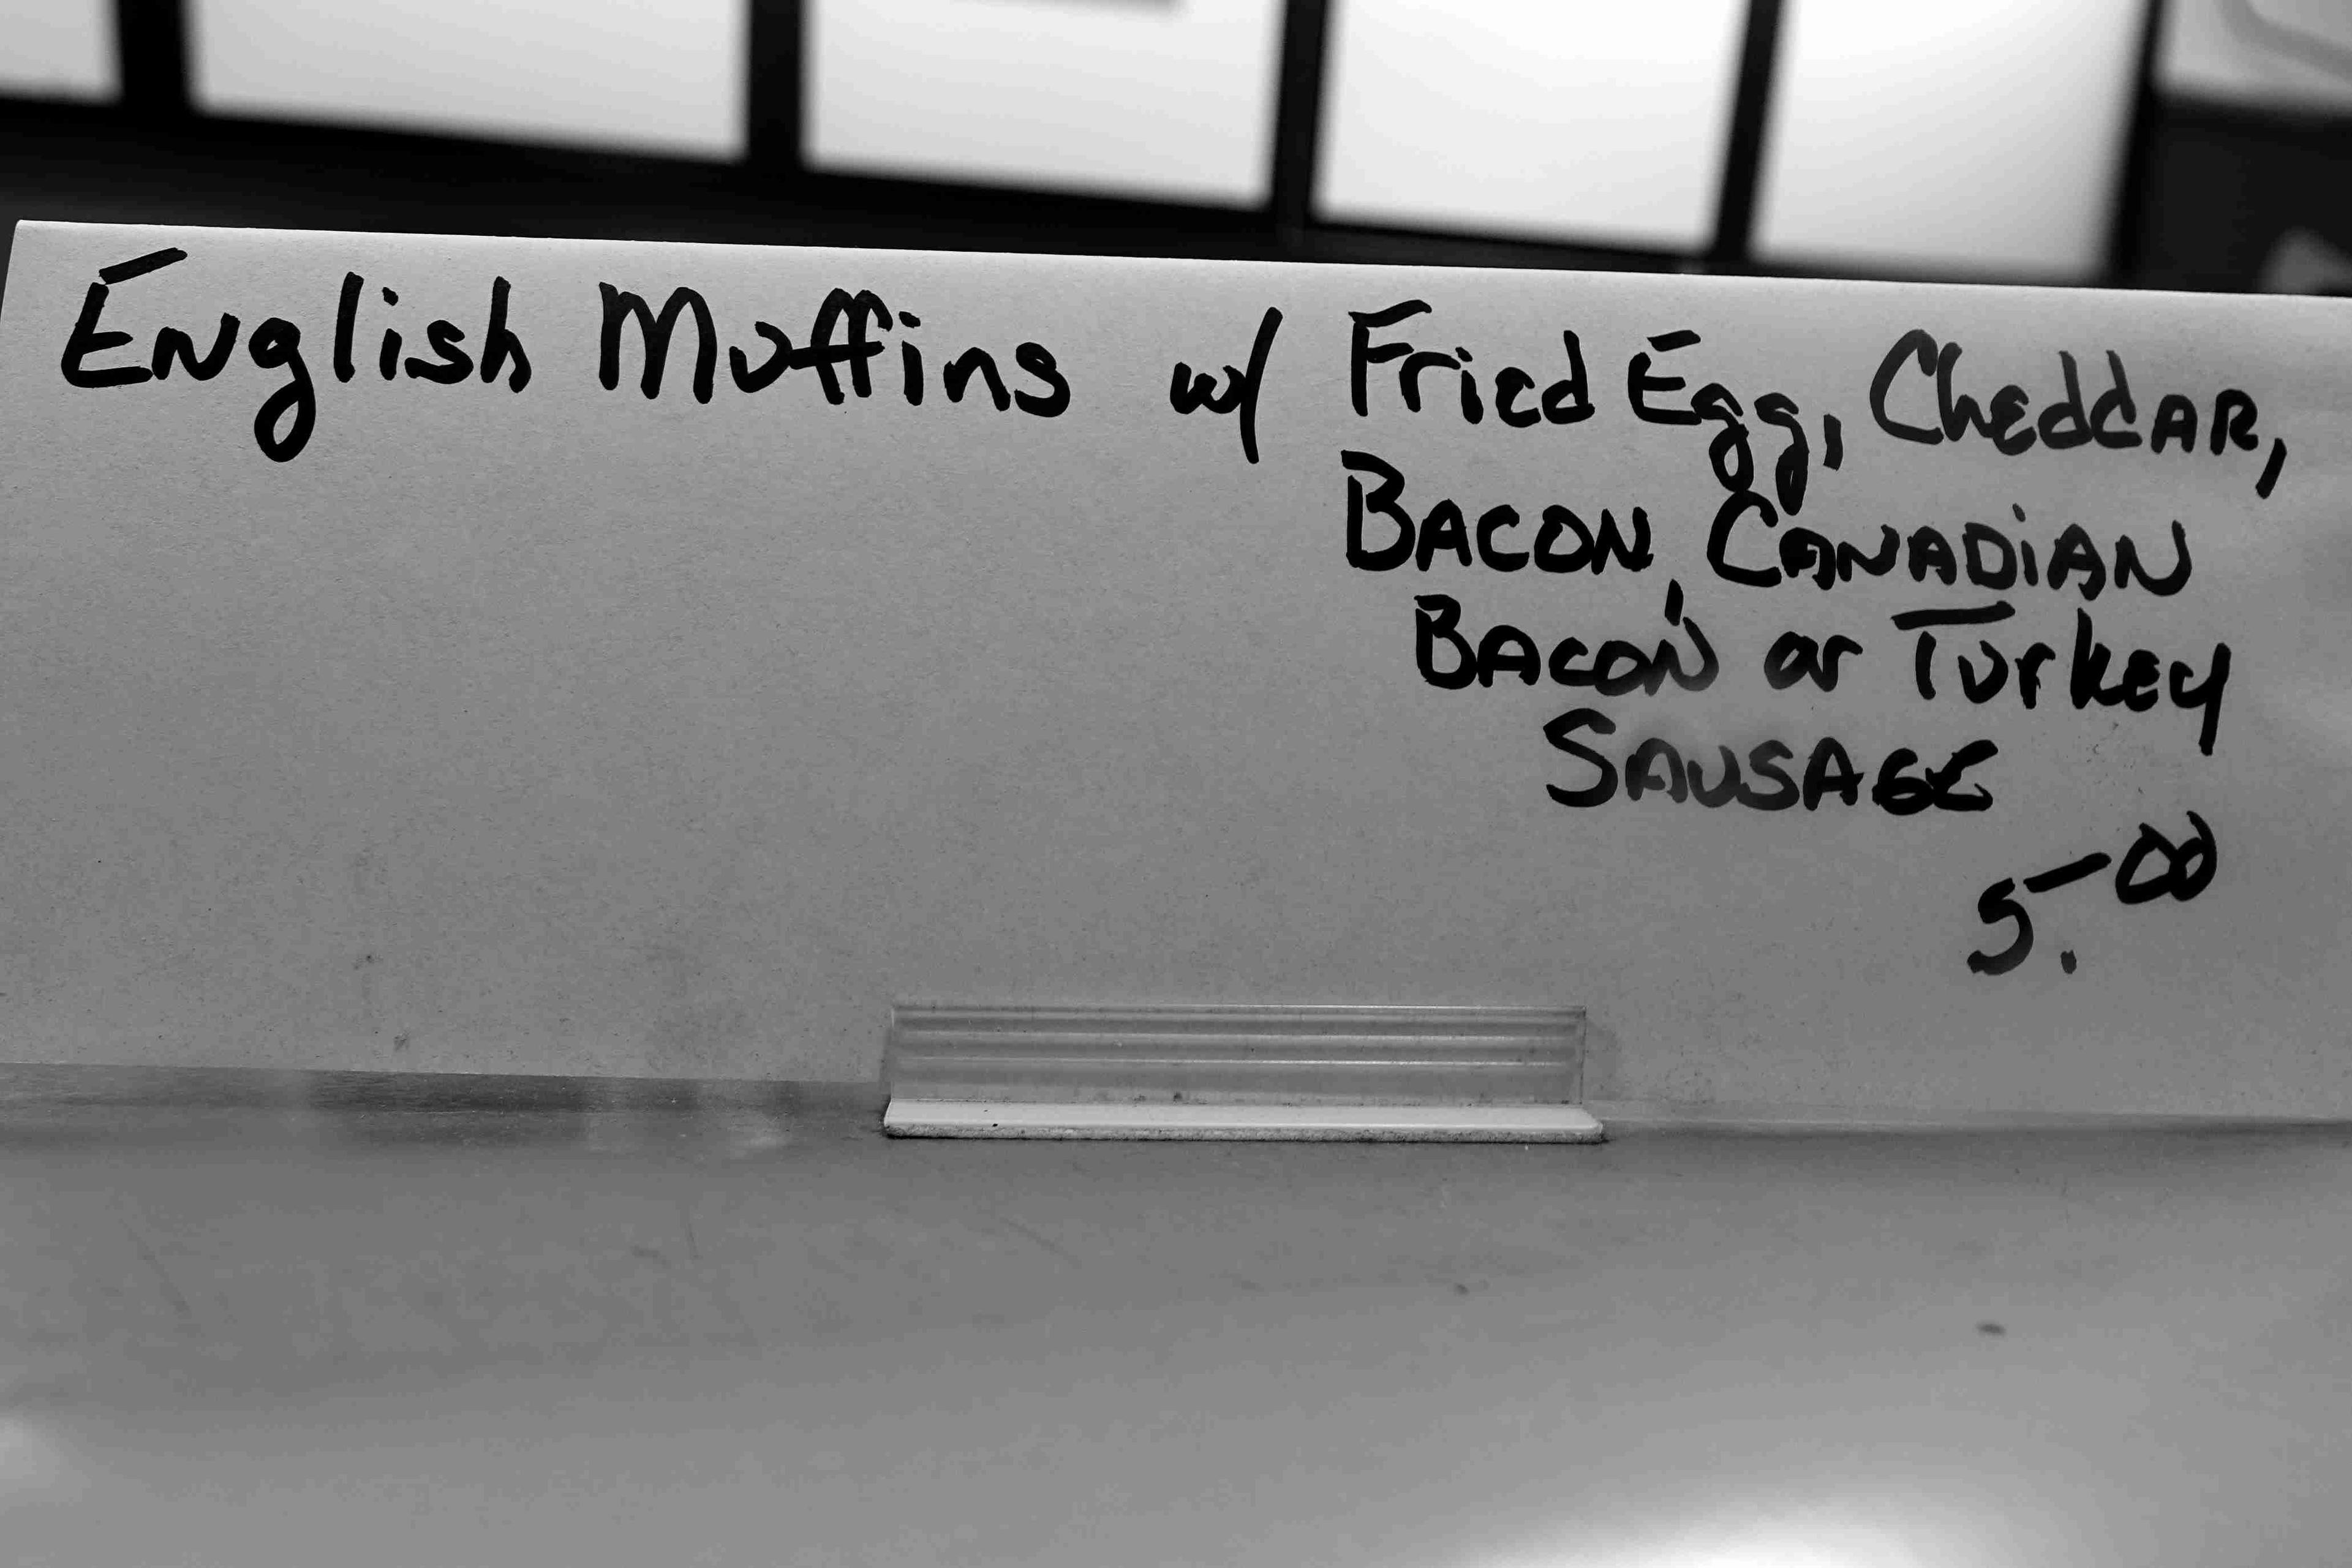 English Muffins w/ Fried Egg, Cheddar,
Bacon, Canadian
Bacon or Turkey
Sausage
5.00